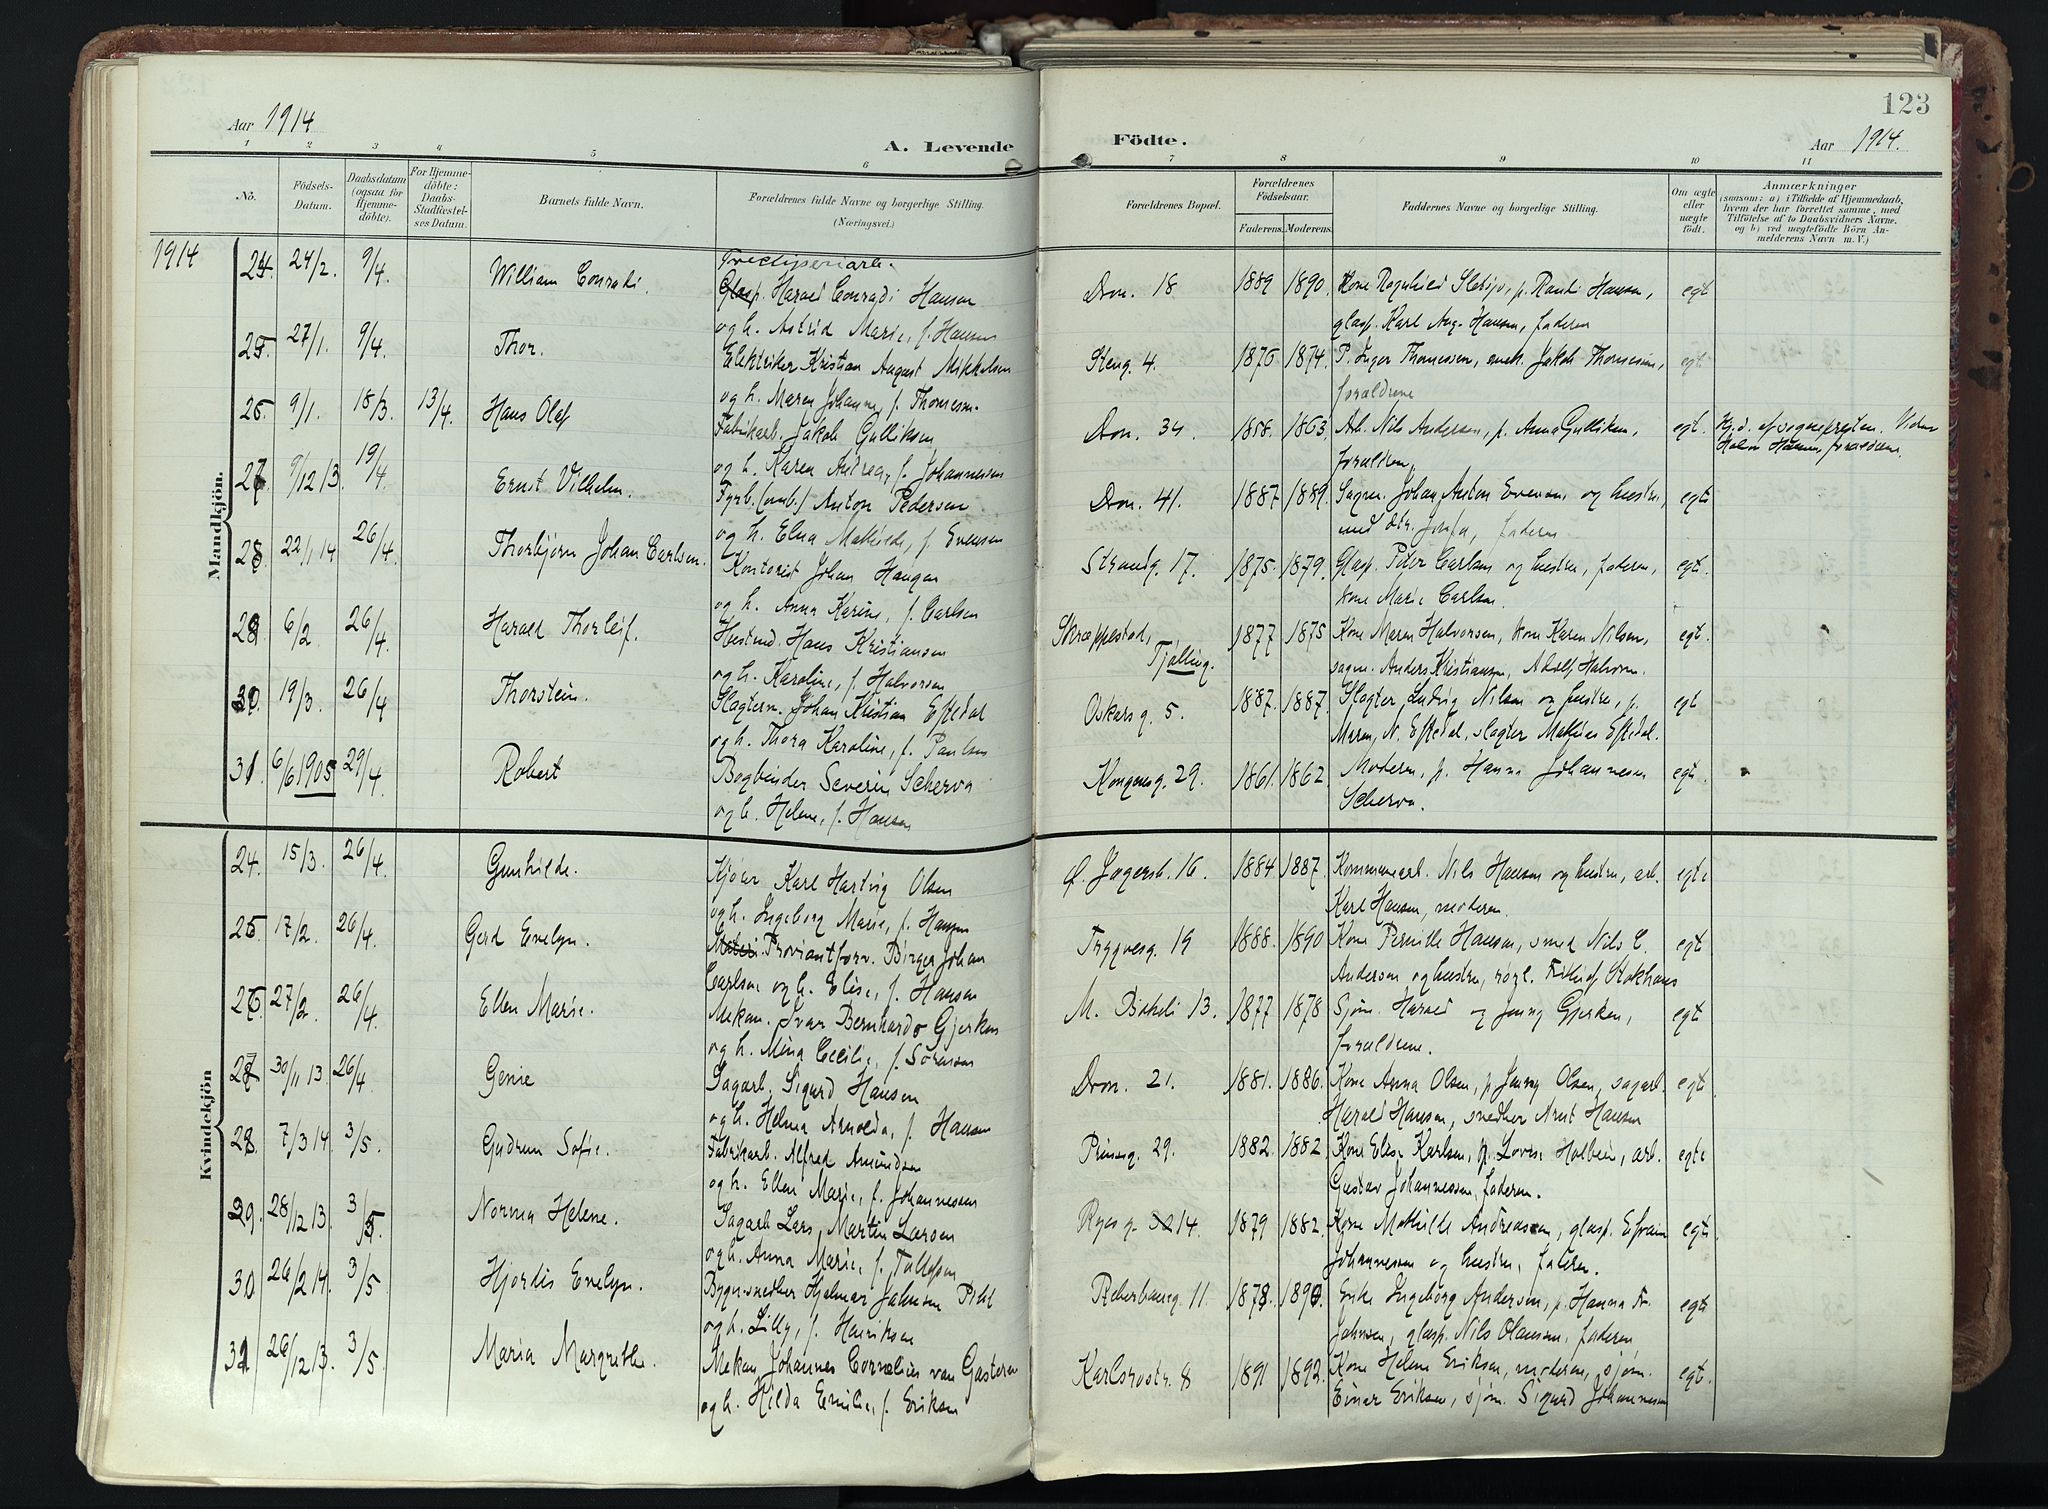 123
Aar 1914
A. Levende
Födte.
Aar 1914.
1 2 3 4 5 6 7 8 9 10 11
No.
Födsels-
Datum.
Daabsdatum
(ogsaa for
Hjemme-
döbte).
For Hjemme-
döbte:
Daabs-
Stadfæstel-
ses Datum.
Barnets fulde Navn.
Forældrenes fulde Navne og borgerlige Stilling.
(Næringsvei.)
Forældrenes Bopæl.
Forældrenes
Födselsaar.
Faderens. Moderens.
Faddernes Navne og borgerlige Stilling.
Om ægte
eller
uægte
födt.
Anmærkninger
(saasom: a) i Tilfælde af Hjemmedaab,
hvem der har forrettet samme, med
Tilföielse af to Daabsvidners Navne.
og b) ved uægtefödte Börn An-
melderens Navn m. V.)
1914
Mandkjön.
24. 24/2. 9/4. William Conradi.
Harald Conradi Hansen
og h. Astrid Marie, f. Hansen
Dron. 18 1889 1890. Kone Ragnhild, p. Randi Hansen, egt
glasp. Karl Aug. Hansen, faderen
25. 27/1. 9/4. Thor.
Elektriker Kristian August Mikkelsen
og h. Maren Johanne, f. Thomesen.
Steng. 4. 1876 1874. P. Inger Thomessen, mek. Jakob Thomesen, egt
forældrene
26. 9/1. 18/3. 13/4. Hans Olaf
Fabrikarb. Jakob Gulliksen
og h. Karen Andrea, f. Johannessen
Dron. 34. 1858. 1863. Arb. Nils Andersen, p. Anna Gulliksen, egt. Hj.d. af sognepresten.
forældren,
27. 9/12 13. 19/4. Ernst Vilhelm.
Fyrb. (omb.) Anton Pedersen
og h. Elna Mathilde, f. Evensen
Dron. 41. 1887 1889. Sagm. Johan Anton Evensen og hustru, egt
med dtr. Josefa, faderen
28. 22/1 14 26/4. Thorbjørn Johan Carlsen.
Kontorist Johan Haugen
og h. Anna Karine, f. Carlsen
Strandg. 17. 1875. 1879. Glasp. Peter Carlsen og hustru, faderen, egt.
kone Marie Carlsen.
29. 6/2 26/4. Harald Thorleif.
Hans Kristiansen
og h. Karoline, f. Halvorsen
Skræppestad, Tjølling. 1877 1875 Kone Maren Halvorsen, kone Karen Nilsen, egt.
sagm. Anders Kristiansen, Adolf Halvorsen.
30. 19/3. 26/4 Thorstein.
Slagterm. Johan Kristian Eftedal
og h. Thora Karoline, f. Paulsen
Oskarsg. 5. 1887. 1887. Slagter Ludvig Nilsen og hustru, p. egt
Maren N. Eftedal, slagter Mathias Eftedal.
31. 6/6 1905 29/4. Robert
Bogbinder Severin Scherva
og h. Helene, f. Hansen
Kongensg. 29. 1861. 1862 Moderen, p. Hanna Johannesen egt.
Scherva.
Kvindekjön
24. 15/3. 26/4. Gunhilde.
Kjører Karl Hartvig Olsen
og h. Ingeborg Marie, f. Hansen
Ø. Jegersb. 16. 1884 1887. Kommunearb. Nils Hansen og hustru, arb. egt.
Karl Hansen, moderen.
25. 17/2. 26/4. Gerd Evelyn.
Proviantforv. Birger Johan
Carlsen og h. Elise, f. Hansen
Trygvesg. 19 1888. 1890 Kone Pernille Hansen, smed Nils C. egt.
Andersen og hustru, Fridtjof Stokhaus
26. 27/2. 26/4. Ellen Marie.
Mekan. Ivar Bernhardo Gjerken
og h. Mina Cecilie, f. Sørensen
M. Bøkeli 13. 1877 1878 Sjøm. Harald og Jenny Gjerken, egt
forældrene.
27. 30/11 13. 26/4. Genie
Sagarb. Sigurd Hansen
og h. Helma Arnolda, f. Hansen
Dron. 21. 1881. 1886. Kone Anna Olsen, p. Jenny Olsen, sagarb. egt
Harald Hansen, snedker Arnt Hansen
28. 7/3 14. 3/5. Gudrun Sofie.
Fabrikarb. Alfred Amundsen
og h. Ellen Marie, f. Johannessen
Prinseg. 29. 1882. 1882 Kone Elise Karlsen, p. Lovise Holbein, arb. egt.
Gustav Johannessen, faderen.
29. 28/12 13. 3/5. Norma Helene.
Sagarb. Lars Martin Larsen
og h. Anna Marie, f. Tollefsen
Ryesg. 14. 1879 1882. Kone Mathilde Andreassen, glasp. Efraim egt
Johannessen og hustru, faderen.
30 26/2 14. 3/5 Hjordis Evelyn.
Bygn.snedker Hjalmar Johnsen
og h. Lilly, f. Henriksen
11. 1878. 1890. Enke Ingeborg Andersen, p. Hanna egt
Johnsen, glasp. Nils Olausen, faderen
31. 26/12 13. 3/5 Maria Margrethe.
Mekan. Johannes Cornelius van Gasteren
og h. Hilda Emilie, f. Eriksen
Karlsrostr. 8 1891 1892. Kone Helene Eriksen, moderen, sjøm. egt.
Einar Eriksen, sjøm. Sigurd Johannessen